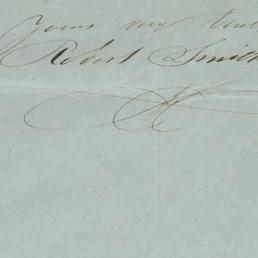 Yours very truly
Robert Smith